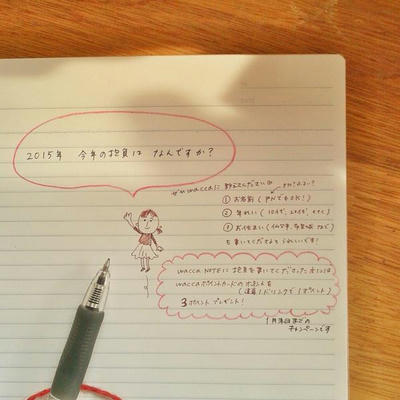 2015年 今年の抱負は なんですか?
waccaに 教えてくださいね
① お名前 (PNでもOK!)
② 年れい (10代、20代、etc)
③ お住まい (
を書いてくださるとうれしいです!
wacca NOTEに 抱負を書いてくださった方には
waccaポイントカードの ポイントを
(通常1ドリンクで1ポイント)
3ポイント プレゼント!
1月末日までの
キャンペーンです